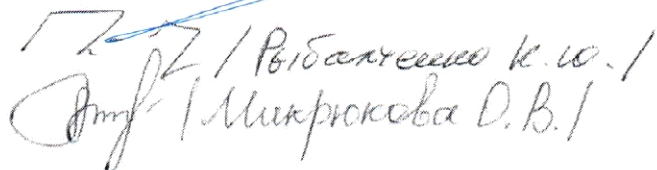 / Рыбалченко К.Ю. /
/ Микрюкова О.В. /